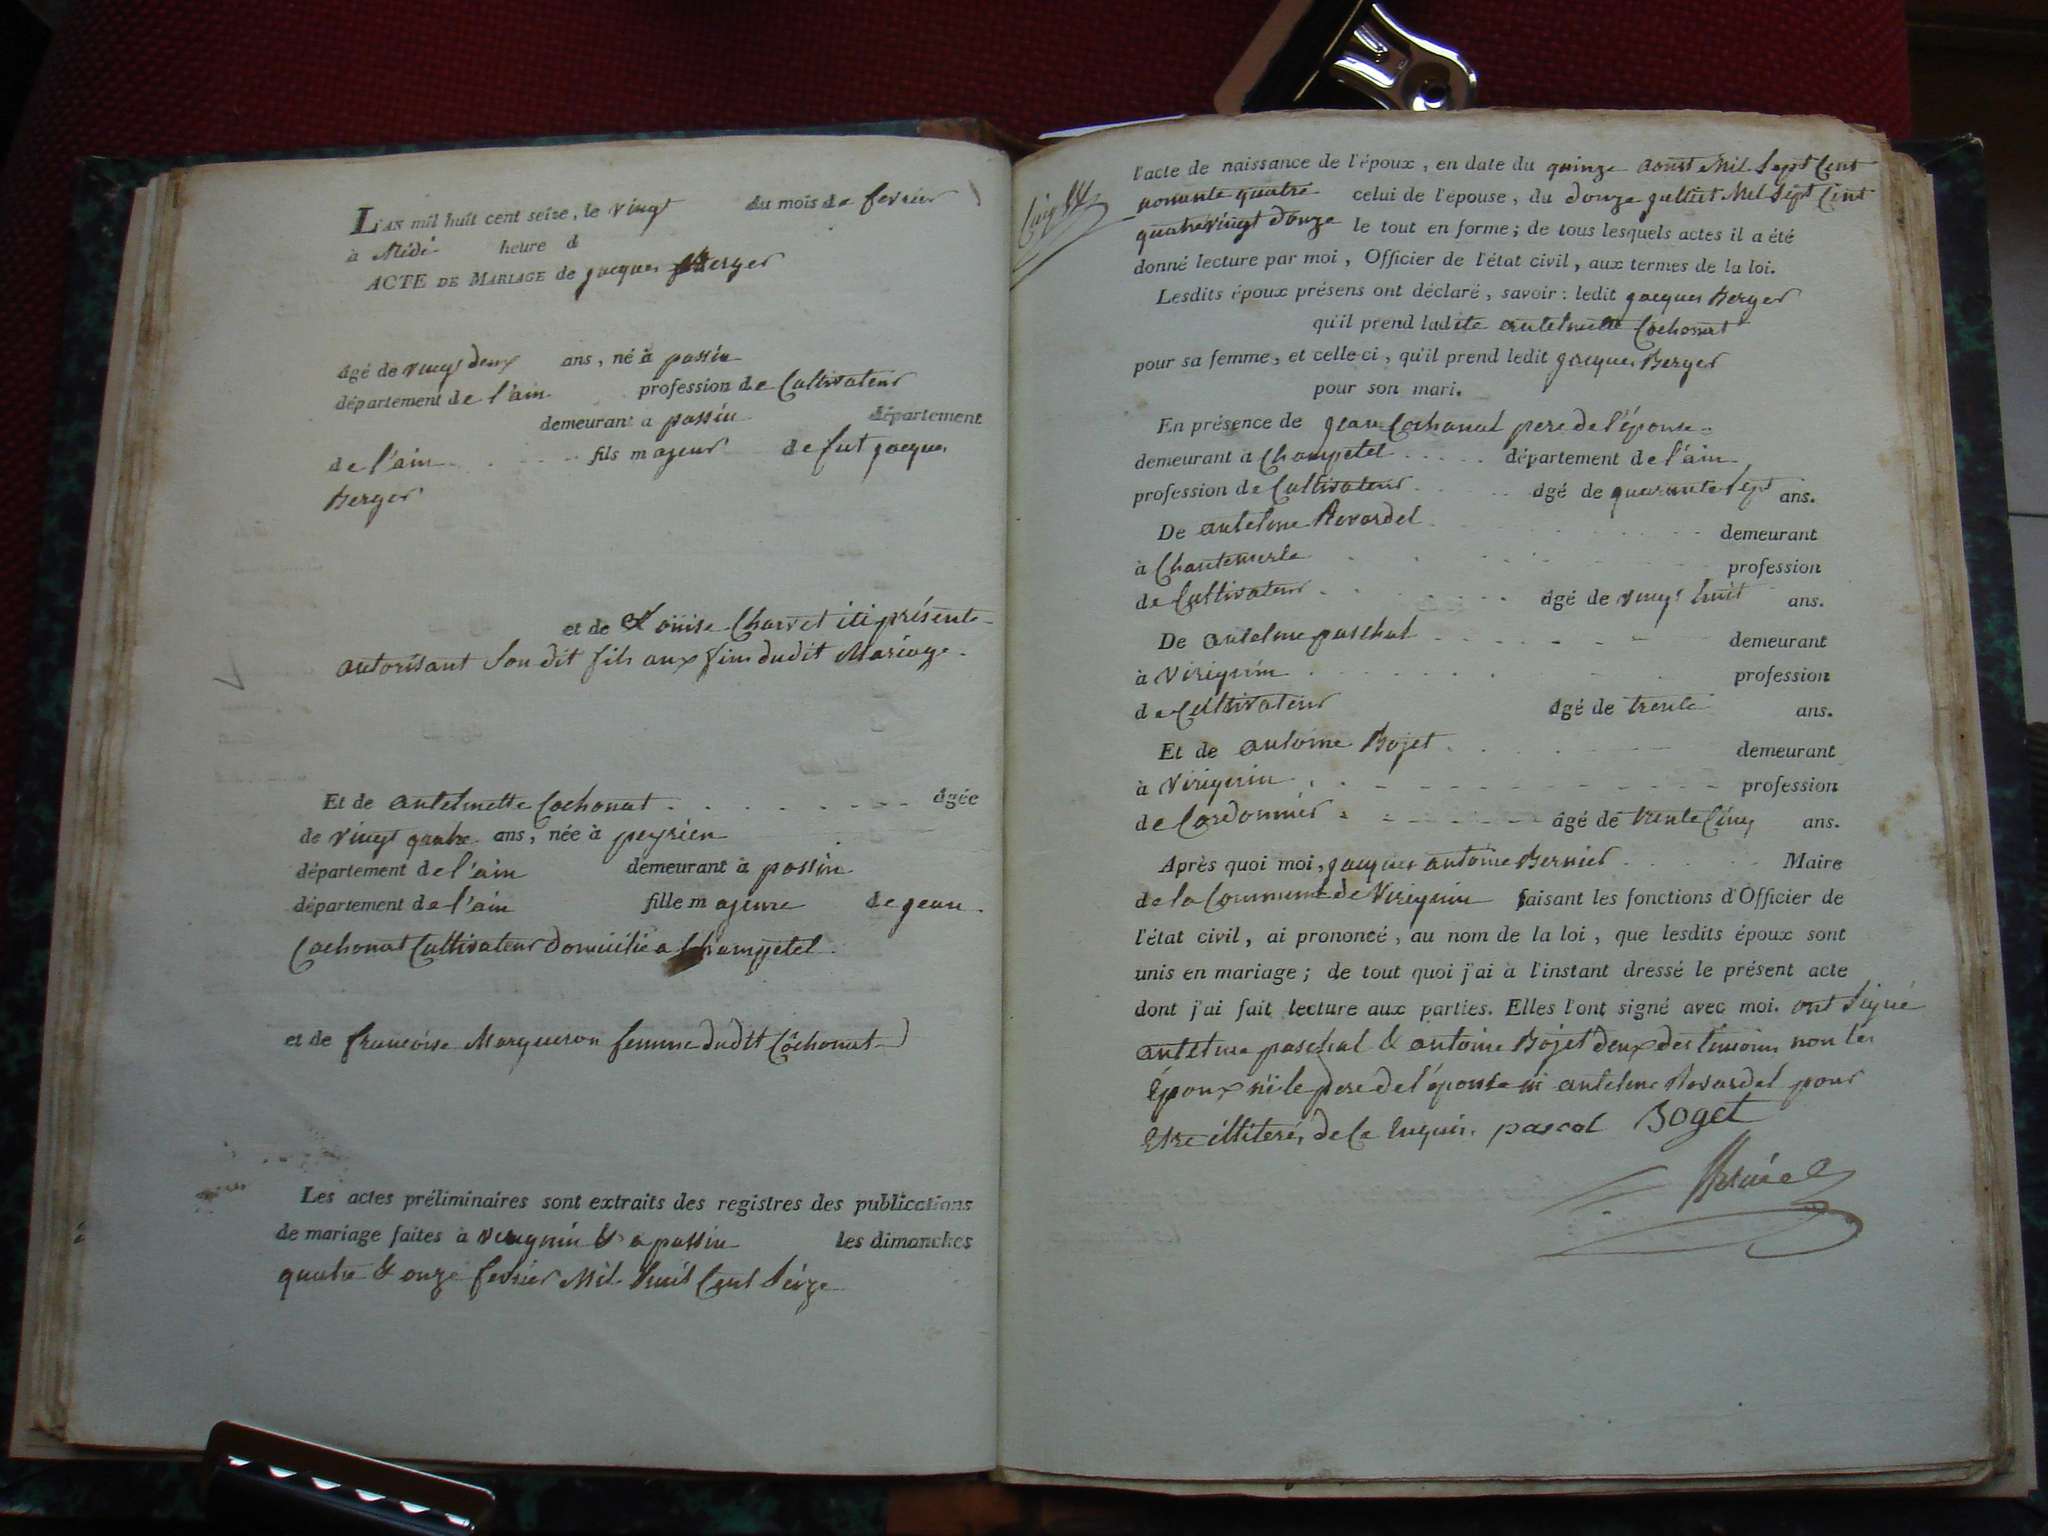 L'AN mil huit cent seize, le vingt du mois de fevrier
à Midi heure d
ACTE DE MARIAGE de jacques Berger
âgé de vingt deux ans, né à passin
département de l'ain profession de Cultivateur
demeurant a passin département
de l'ain fils majeur de fut jacques
Berger
et de Loüise Charvet ici présente
autorisant Son dit fils aux fins dudit Mariage.
Et de antelmette Cochonat âgée
de vingt quatre ans, née à peyrieu
département de l'ain demeurant à passin
département de l'ain fille majeure de jean
Cochonat Cultivateur domicilié a Champetel
et de francoise Marqueron femme dudit Cochonat
Les actes préliminaires sont extraits des registres des publications
de mariage faites à virignin & a passin les dimanches
quatre & onze fevrier Mil huit Cent Seize
l'acte de naissance de l'époux, en date du quinze aoust Mil Sept Cent
nonante quatre celui de l'épouse, du douze juillet Mil Sept Cent
quatrevingt douze le tout en forme; de tous lesquels actes il a été
donné lecture par moi, Officier de l'état civil, aux termes de la loi.
Lesdits époux présens ont déclaré, savoir: ledit jacques Berger
qu'il prend ladite antelmette Cochonat
pour sa femme, et celle-ci, qu'il prend ledit jacques Berger
pour son mari.
En présence de jean Cochonat pere de l'épouse
demeurant à Champetel département de l'ain
profession de Cultivateur âgé de quarante Sept ans.
De antelme Revardel demeurant
à Chantemerle profession
de Cultivateur âgé de vingt huit ans.
De antelme paschal demeurant
à Virignin profession
de Cultivateur âgé de trente ans.
Et de antoine Bojet demeurant
à Virignin profession
de Cordonnier âgé de trente Cinq ans.
Après quoi moi, jacques antoine Bernier Maire
de la Commune de Virignin faisant les fonctions d'Officier de
l'état civil, ai prononcé, au nom de la loi, que lesdits époux sont
unis en mariage; de tout quoi j'ai à l'instant dressé le présent acte
dont j'ai fait lecture aux parties. Elles l'ont signé avec moi. ont Signé
antelme paschal & antoine Bojet deux des temoins non les
époux ni le pere de l'épouse ni antelme Revardel pour
Etre illiteré, de ce Enquis. pascal Boget